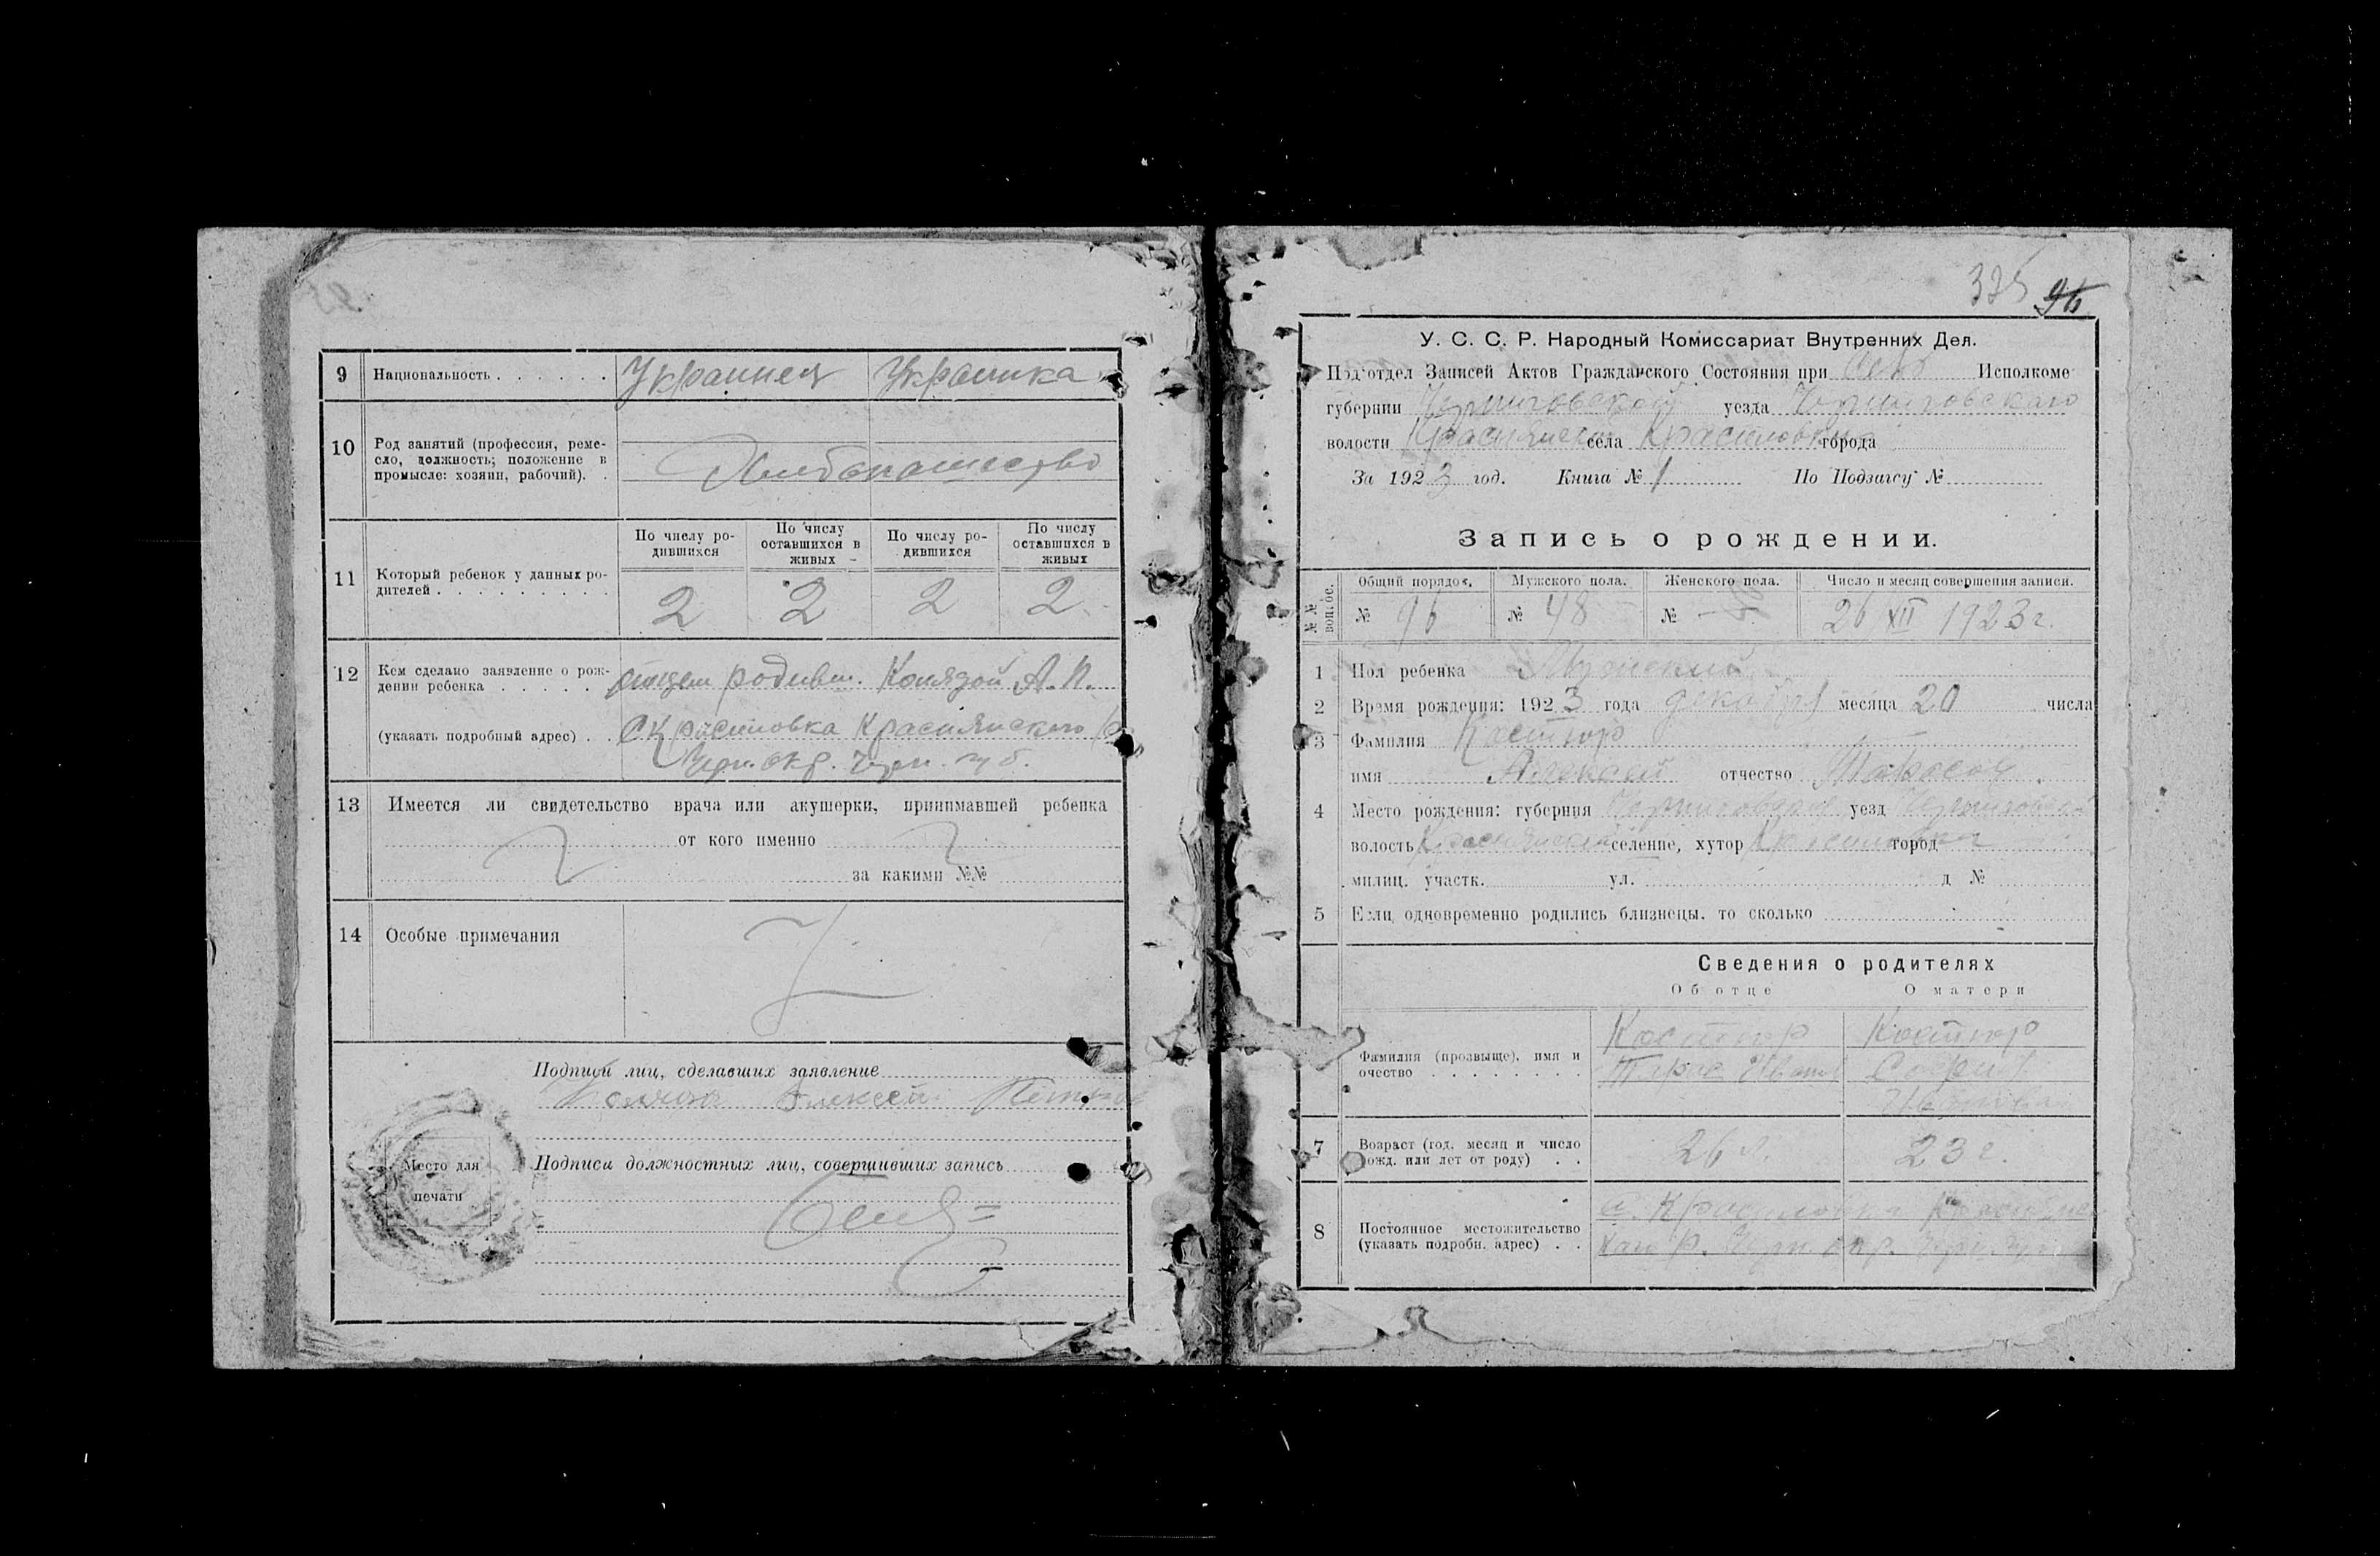 9 Национальность . . . . . . Украинец Украинка
10 Род занятий (профессия, реме-
сло, должность; положение в
промысле: хозяин, рабочий). .
Хлебопашество
11 Который ребенок у данных ро-
дителей . . . . . . . . .
По числу ро-
дившихся
По числу
оставшихся в
живых
По числу ро-
дившихся
По числу
оставшихся в
живых
2 2 2 2
12 Кем сделано заявление о рож-
дении ребенка . . . . . отцем родивш. Колядой А. П.
(указать подробный адрес) . . С Красиловка Краснянского р
Черн. окр. Черн. губ.
13 Имеется ли свидетельство врача или акушерки, принимавшей ребенка
от кого именно
за какими №№
14 Особые примечания
Подписи лиц, сделавших заявление
Коляда Алексей
Место для
печати
Подписи должностных лиц, совершивших запись
335 96
У. С. С. Р. Народный Комиссариат Внутренних Дел.
Под'отдел Записей Актов Гражданского Состояния при Исполкоме
губернии Черниговской уезда Черниговскаго
волости села Красиловка города
За 1923 год. Книга № 1 По Подзагсу №
Запись о рождении.
№№ вопросс.
Общий порядок. Мужского пола. Женского пола. Число и месяц совершения записи.
№ 96 № 48 № 26 XII 1923 г.
1 Пол ребенка Мужеский
2 Время рождения: 1923 года декабря месяца 20 числа
3 Фамилия Костюр
имя Алексей отчество Тарасов
4 Место рождения: губерния Черниговская уезд Черниговский
волость селение, хутор Красиловка город
милиц. участк. ул. д №
5 Если одновременно родились близнецы, то сколько
Сведения о родителях
Об отце О матери
Фамилия (прозвыще), имя и
очество . . . . . . . .
Костюр Костюр
Тарас Иванов София
7 Возраст (год, месяц и число
рожд. или лет от роду) . .
26 л. 23 г.
8 Постоянное местожительство
(указать подробн. адрес) . .
с. Красиловка Краснянс
каго р. Черн. окр. Черн. губ.